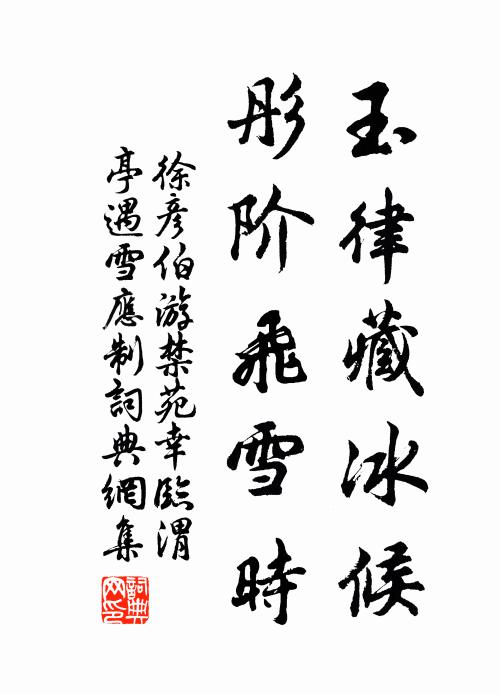 玉律藏冰候
彤阶飛雪時
徐彦伯游禁苑幸臨渭
亭遇雪應制詞典網集
詞典網印